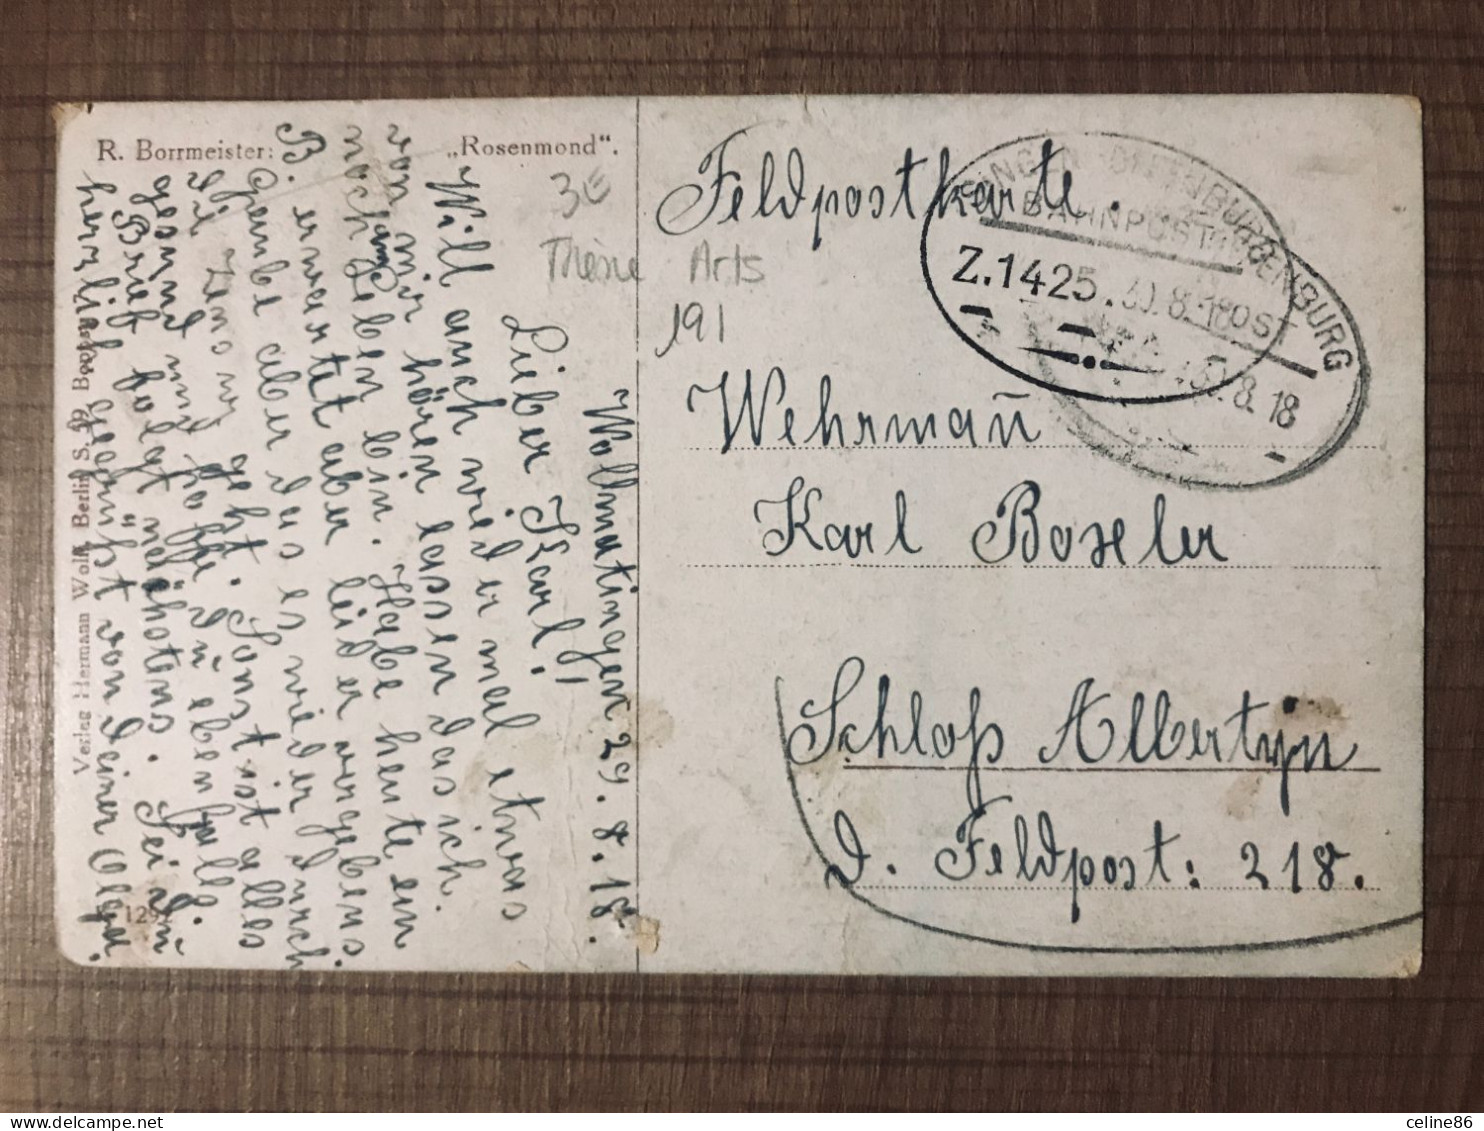 R. Borrmeister: „Rosenmond".
Verlag Hermann Wolff, Berlin S.
3€
Thème Arts
191
Feldpostkarte.
SINGEN OFFENBURG
BAHNPOST
Z.1425. 30.8.18
OFFENBURG
POST
30.8.18
Wehrmañ
Karl Boxler
Schloß Albertyn
D. Feldpost: 218.
Wollmatingen 29.8.18.
Lieber Karl!
Will auch wieder mal etwas
von mir hören lassen das ich
noch am Leben bin. Habe heute ein
B. erwartet aber leider vergebens.
Glaube aber das es wieder durch
die Zensur geht. Sonst ist alles
gesund und hoffe du ebenfalls.
Brief folgt nächstens. Sei nun
herzlich gegrüßt von deiner Olga.
celine86